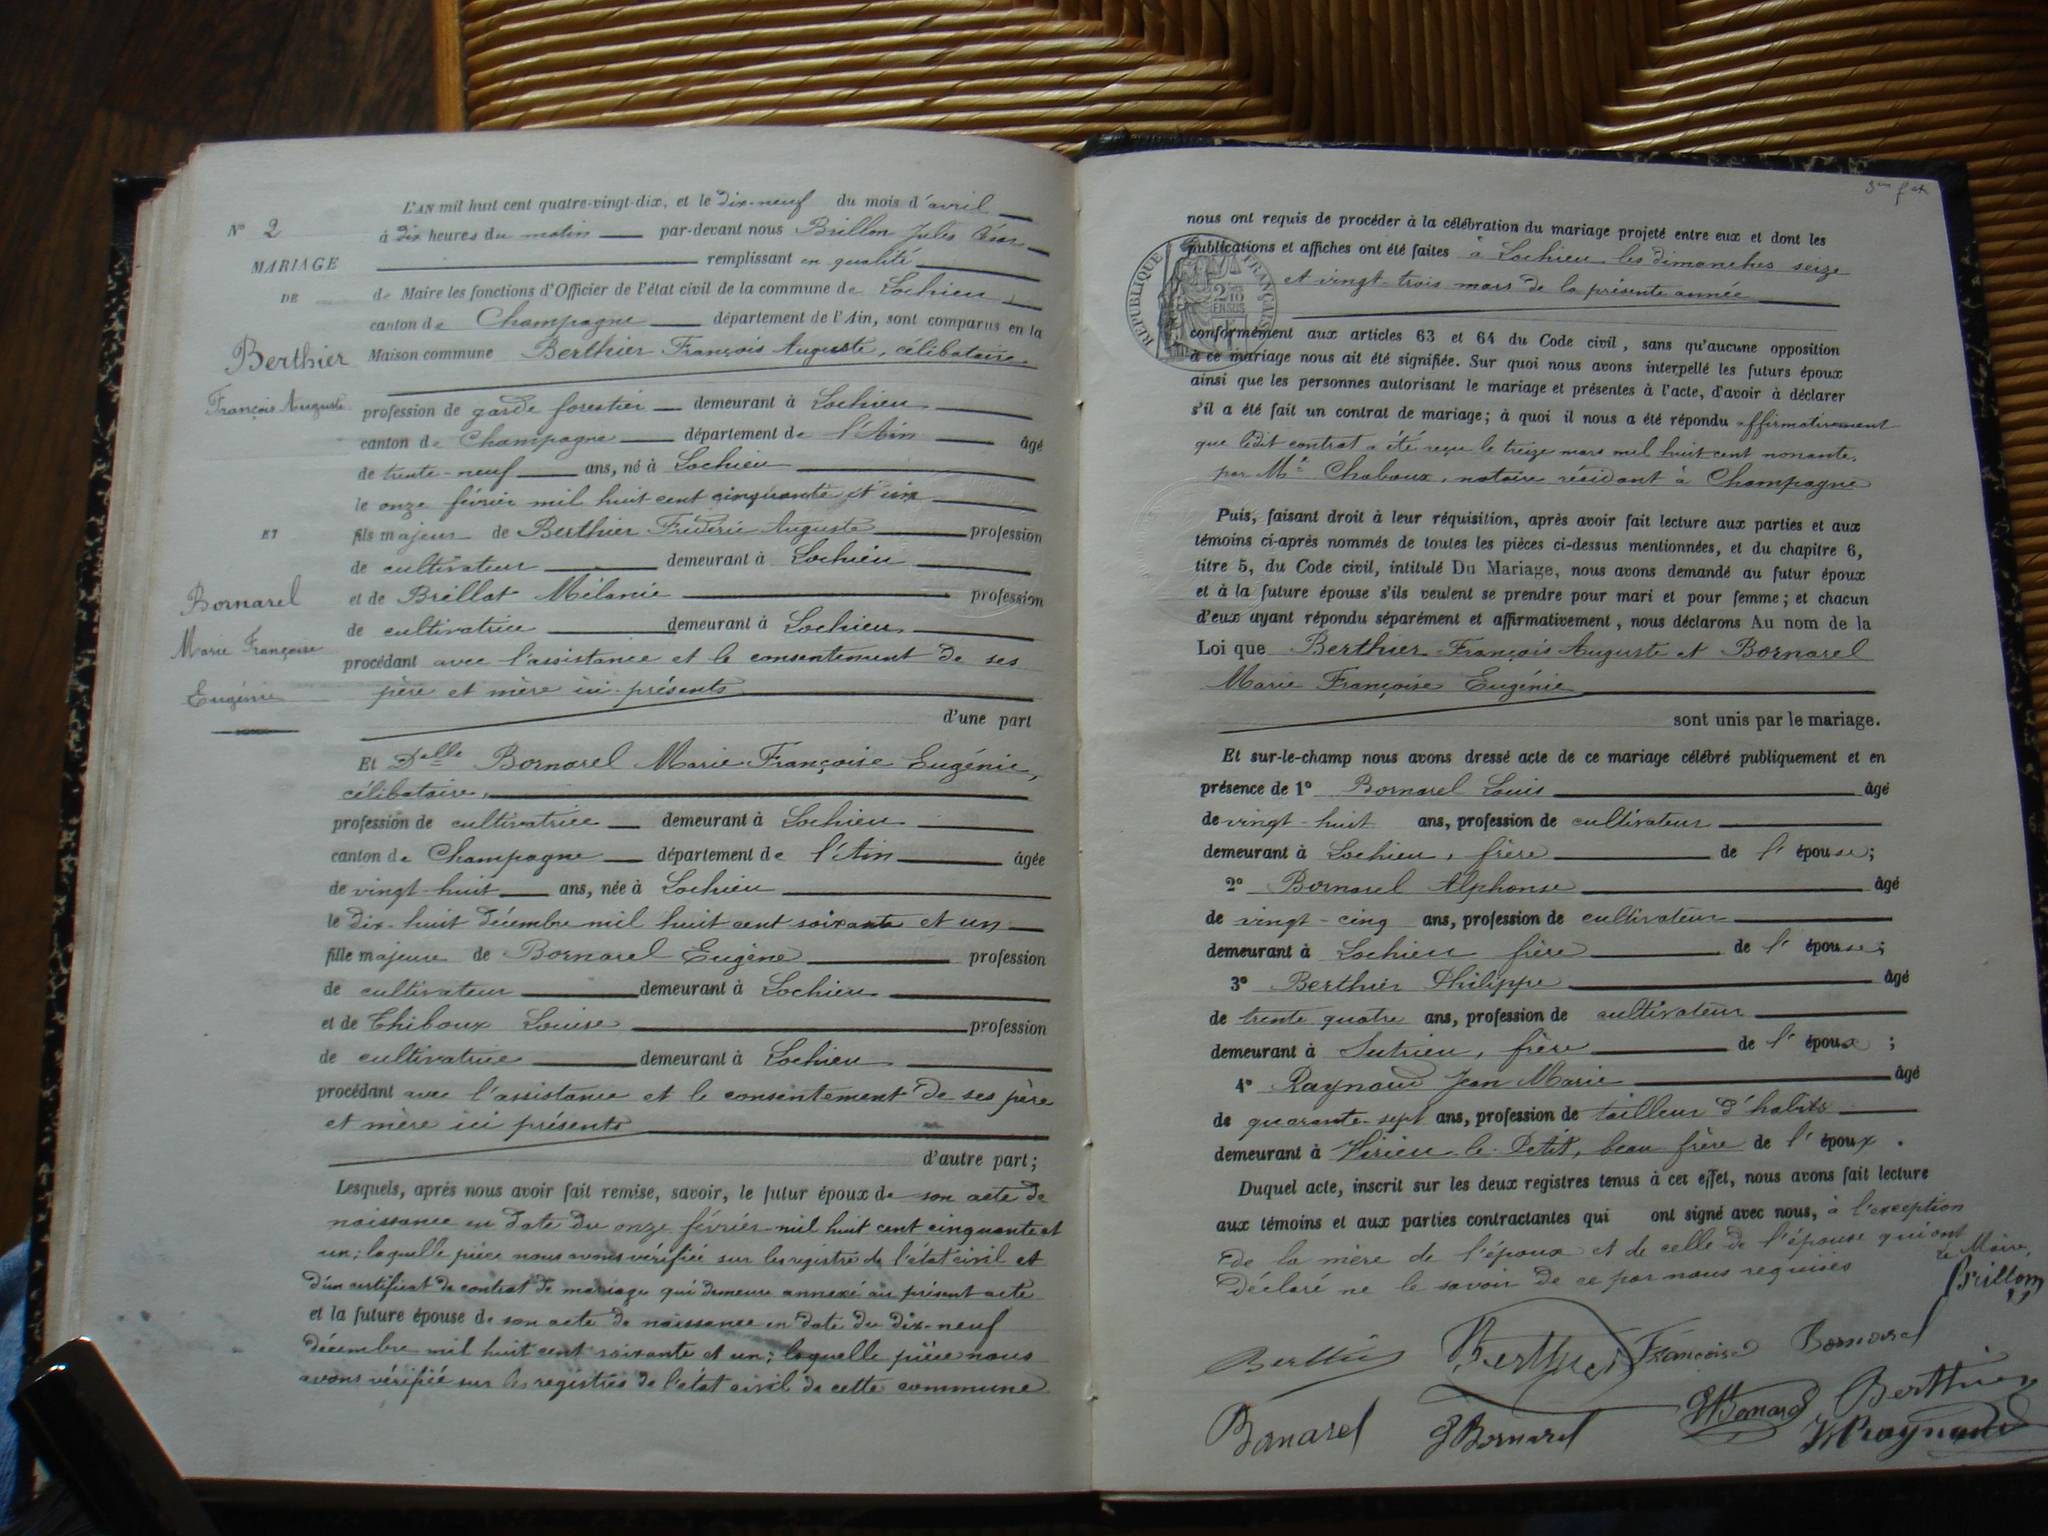 N° 2
MARIAGE
DE
Berthier
François Auguste
ET
Bornarel
Marie Françoise
Eugénie
L'AN mil huit cent quatre-vingt-dix, et le dix-neuf du mois d'avril
à dix heures du matin par-devant nous Brillon Jules César
remplissant en qualité
de Maire les fonctions d'Officier de l'état civil de la commune de Lochieu
canton de Champagne département de l'Ain, sont comparus en la
Maison commune Berthier François Auguste, célibataire
profession de garde forestier demeurant à Lochieu
canton de Champagne département de l'Ain âgé
de trente-neuf ans, né à Lochieu
le onze février mil huit cent cinquante et un
fils majeur de Berthier Frédéric Auguste profession
de cultivateur demeurant à Lochieu
et de Brillat Mélanie profession
de cultivatrice demeurant à Lochieu
procédant avec l'assistance et le consentement de ses
père et mère ici présents
d'une part
Et Delle Bornarel Marie Françoise Eugénie,
célibataire,
profession de cultivatrice demeurant à Lochieu
canton de Champagne département de l'Ain âgée
de vingt-huit ans, née à Lochieu
le dix-huit décembre mil huit cent soixante et un
fille majeure de Bornarel Eugène profession
de cultivateur demeurant à Lochieu
et de Thiboux Louise profession
de cultivatrice demeurant à Lochieu
procédant avec l'assistance et le consentement de ses père
et mère ici présents
d'autre part;
Lesquels, après nous avoir fait remise, savoir, le futur époux de son acte de
naissance en date du onze février mil huit cent cinquante et
un; laquelle pièce nous avons vérifiée sur les registres de l'état civil et
d'un certificat de contrat de mariage qui demeure annexé au présent acte
et la future épouse de son acte de naissance en date du dix-neuf
décembre mil huit cent soixante et un; laquelle pièce nous
avons vérifiée sur les registres de l'état civil de cette commune
nous ont requis de procéder à la célébration du mariage projeté entre eux et dont les
publications et affiches ont été faites à Lochieu les dimanches seize
et vingt-trois mars de la présente année
RÉPUBLIQUE FRANÇAISE
conformément aux articles 63 et 64 du Code civil, sans qu'aucune opposition
à ce mariage nous ait été signifiée. Sur quoi nous avons interpellé les futurs époux
ainsi que les personnes autorisant le mariage et présentes à l'acte, d'avoir à déclarer
s'il a été fait un contrat de mariage; à quoi il nous a été répondu affirmativement
que ledit contrat a été reçu le treize mars mil huit cent nonante,
par Me Chaboux, notaire résidant à Champagne
Puis, faisant droit à leur réquisition, après avoir fait lecture aux parties et aux
témoins ci-après nommés de toutes les pièces ci-dessus mentionnées, et du chapitre 6,
titre 5, du Code civil, intitulé Du Mariage, nous avons demandé au futur époux
et à la future épouse s'ils veulent se prendre pour mari et pour femme; et chacun
d'eux ayant répondu séparément et affirmativement, nous déclarons Au nom de la
Loi que Berthier François Auguste et Bornarel
Marie Françoise Eugénie
sont unis par le mariage.
Et sur-le-champ nous avons dressé acte de ce mariage célébré publiquement et en
présence de 1° Bornarel Louis âgé
de vingt-huit ans, profession de cultivateur
demeurant à Lochieu, frère de l'épouse;
2° Bornarel Alphonse âgé
de vingt-cinq ans, profession de cultivateur
demeurant à Lochieu frère de l'épouse;
3° Berthier Philippe âgé
de trente quatre ans, profession de cultivateur
demeurant à Sutrieu, frère de l'époux;
4° Raynaud Jean Marie âgé
de quarante-sept ans, profession de tailleur d'habits
demeurant à Virieu le Petit, beau frère de l'époux.
Duquel acte, inscrit sur les deux registres tenus à cet effet, nous avons fait lecture
aux témoins et aux parties contractantes qui ont signé avec nous, à l'exception
de la mère de l'époux et de celle de l'épouse qui ont
déclaré ne le savoir de ce par nous requises
Le Maire,
Brillon
Berthier Berthier Françoise Bornarel
Bornarel Bornarel Bornarel Berthier
Raynaud